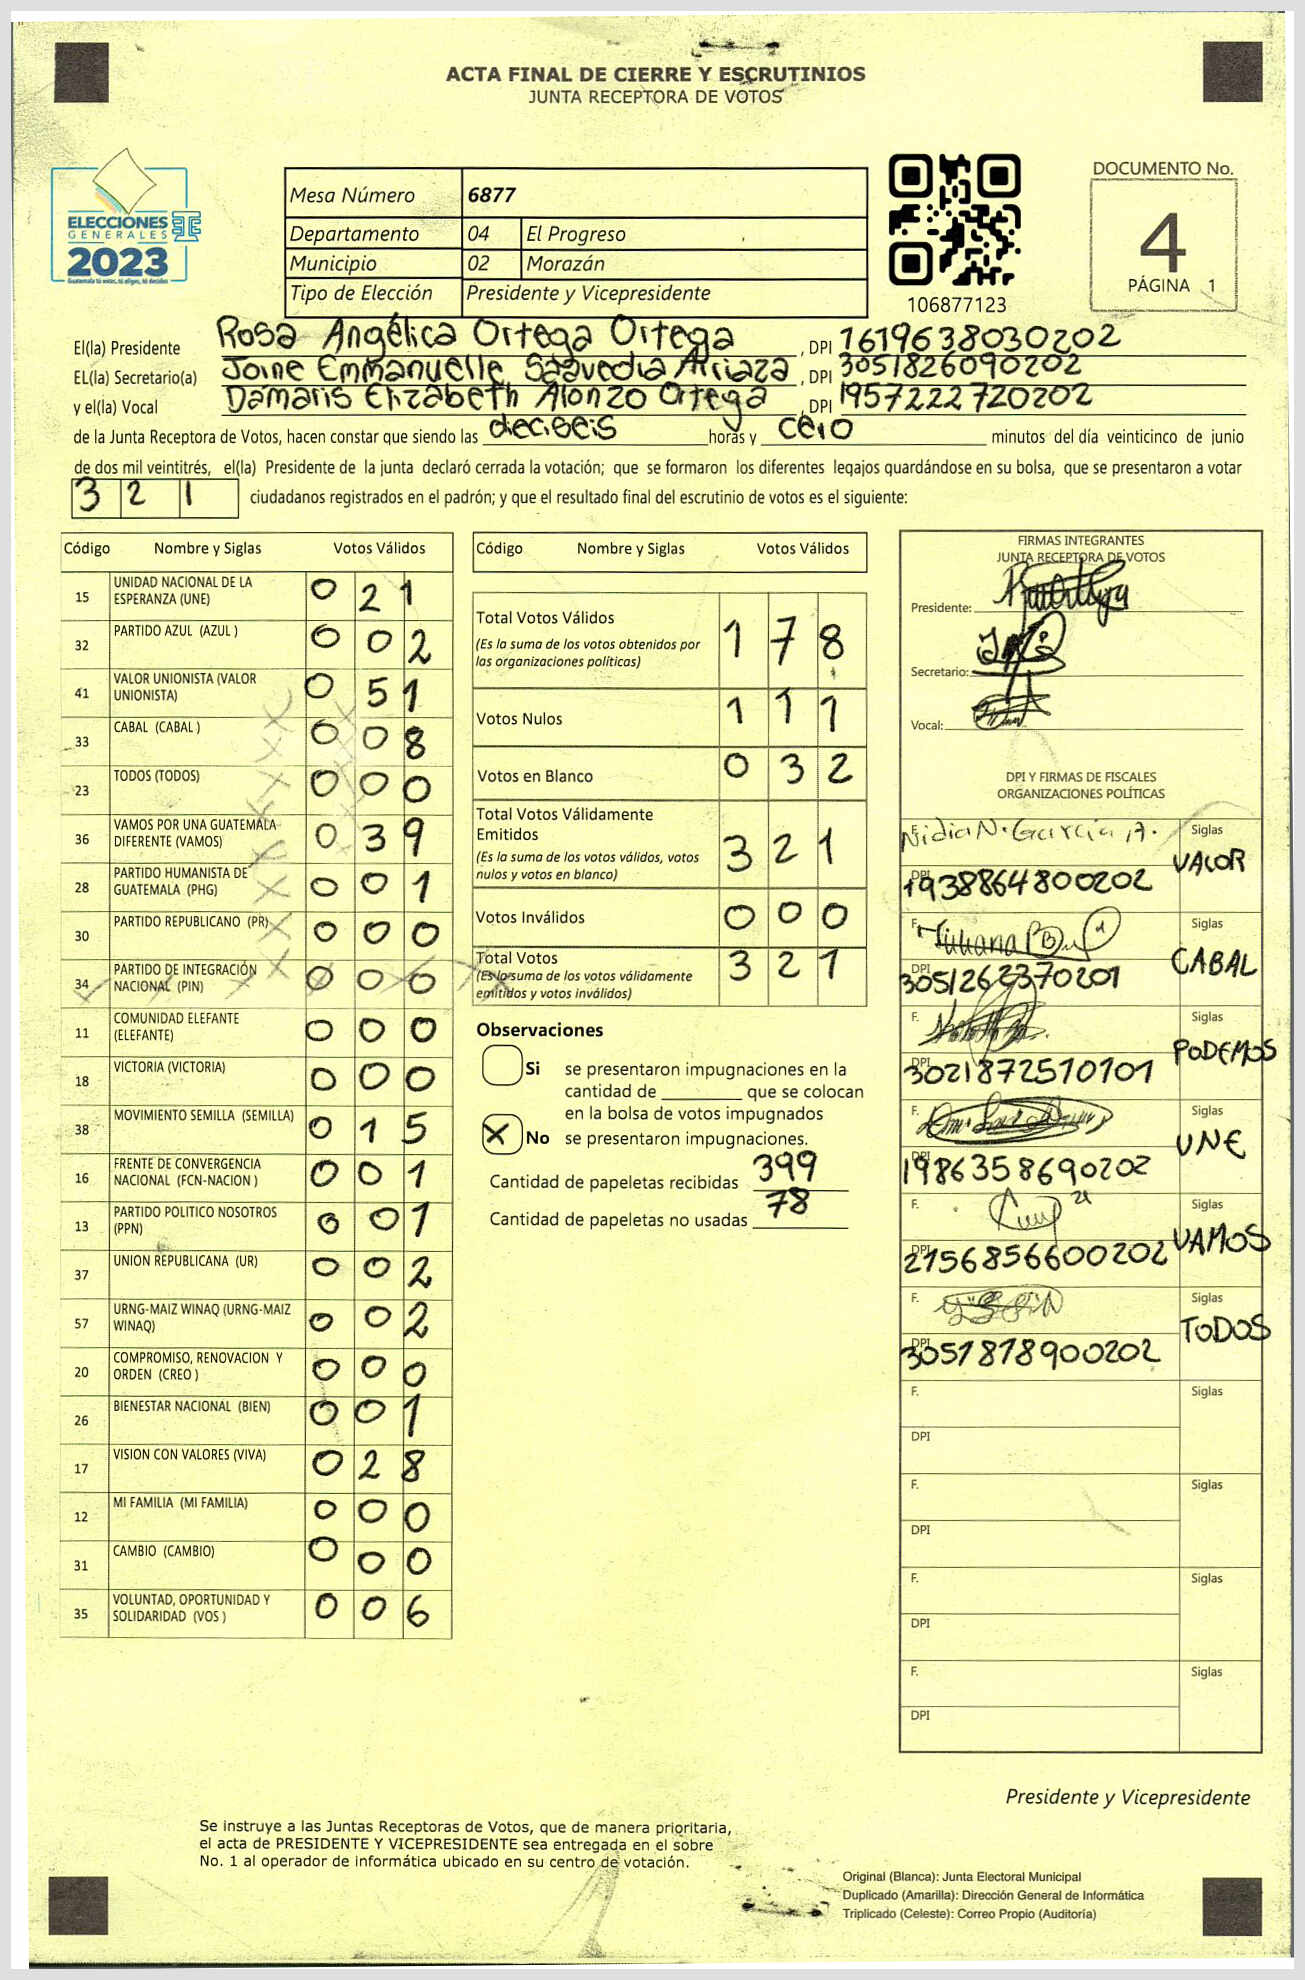 ACTA FINAL DE CIERRE Y ESCRUTINIOS
JUNTA RECEPTORA DE VOTOS
ELECCIONES
GENERALES
2023
Guatemala tú votas, tú eliges, tú decides
Mesa Número 6877
Departamento 04 El Progreso
Municipio 02 Morazán
Tipo de Elección Presidente y Vicepresidente
106877123
DOCUMENTO No.
4
PÁGINA 1
El(la) Presidente Rosa Angélica Ortega Ortega, DPI 1619638030202
EL(la) Secretario(a) Joine Emmanuelle Saavedia Arriaza, DPI 3051826090202
y el(la) Vocal Dámaris Elizabeth Alonzo Ortega, DPI 1957222720202
de la Junta Receptora de Votos, hacen constar que siendo las deciseis horas y cero minutos del día veinticinco de junio
de dos mil veintitrés, el(la) Presidente de la junta declaró cerrada la votación; que se formaron los diferentes legajos quardándose en su bolsa, que se presentaron a votar
321 ciudadanos registrados en el padrón; y que el resultado final del escrutinio de votos es el siguiente:
Código Nombre y Siglas Votos Válidos
15 UNIDAD NACIONAL DE LA ESPERANZA (UNE) 0 2 1
32 PARTIDO AZUL (AZUL ) 0 0 2
41 VALOR UNIONISTA (VALOR UNIONISTA) 0 5 1
33 CABAL (CABAL ) 0 0 8
23 TODOS (TODOS) 0 0 0
36 VAMOS POR UNA GUATEMALA DIFERENTE (VAMOS) 0 3 9
28 PARTIDO HUMANISTA DE GUATEMALA (PHG) 0 0 1
30 PARTIDO REPUBLICANO (PR) 0 0 0
34 PARTIDO DE INTEGRACIÓN NACIONAL (PIN) 0 0 0
11 COMUNIDAD ELEFANTE (ELEFANTE) 0 0 0
18 VICTORIA (VICTORIA) 0 0 0
38 MOVIMIENTO SEMILLA (SEMILLA) 0 1 5
16 FRENTE DE CONVERGENCIA NACIONAL (FCN-NACION ) 0 0 1
13 PARTIDO POLITICO NOSOTROS (PPN) 0 0 1
37 UNION REPUBLICANA (UR) 0 0 2
57 URNG-MAIZ WINAQ (URNG-MAIZ WINAQ) 0 0 2
20 COMPROMISO, RENOVACION Y ORDEN (CREO ) 0 0 0
26 BIENESTAR NACIONAL (BIEN) 0 0 1
17 VISION CON VALORES (VIVA) 0 2 8
12 MI FAMILIA (MI FAMILIA) 0 0 0
31 CAMBIO (CAMBIO) 0 0 0
35 VOLUNTAD, OPORTUNIDAD Y SOLIDARIDAD (VOS ) 0 0 6
Código Nombre y Siglas Votos Válidos
Total Votos Válidos 1 7 8
(Es la suma de los votos obtenidos por
las organizaciones políticas)
Votos Nulos 1 1 1
Votos en Blanco 0 3 2
Total Votos Válidamente
Emitidos 3 2 1
(Es la suma de los votos válidos, votos
nulos y votos en blanco)
Votos Inválidos 0 0 0
Total Votos 3 2 1
(Es la suma de los votos válidamente
emitidos y votos inválidos)
Observaciones
Si se presentaron impugnaciones en la
cantidad de ________ que se colocan
en la bolsa de votos impugnados
X No se presentaron impugnaciones.
Cantidad de papeletas recibidas 399
Cantidad de papeletas no usadas 78
FIRMAS INTEGRANTES
JUNTA RECEPTORA DE VOTOS
Presidente:
Secretario:
Vocal:
DPI Y FIRMAS DE FISCALES
ORGANIZACIONES POLÍTICAS
F. Nidia N. García A. Siglas VALOR
DPI 1938864800202
F. Siglas CABAL
DPI 3051262370201
F. Siglas PODEMOS
DPI 3021872510101
F. Siglas UNE
DPI 1986358690202
F. Siglas VAMOS
DPI 2156856600202
F. Siglas TODOS
DPI 3051818900202
F. Siglas
DPI
F. Siglas
DPI
F. Siglas
DPI
F. Siglas
DPI
Presidente y Vicepresidente
Se instruye a las Juntas Receptoras de Votos, que de manera prioritaria,
el acta de PRESIDENTE Y VICEPRESIDENTE sea entregada en el sobre
No. 1 al operador de informática ubicado en su centro de votación.
Original (Blanca): Junta Electoral Municipal
Duplicado (Amarilla): Dirección General de Informática
Triplicado (Celeste): Correo Propio (Auditoría)